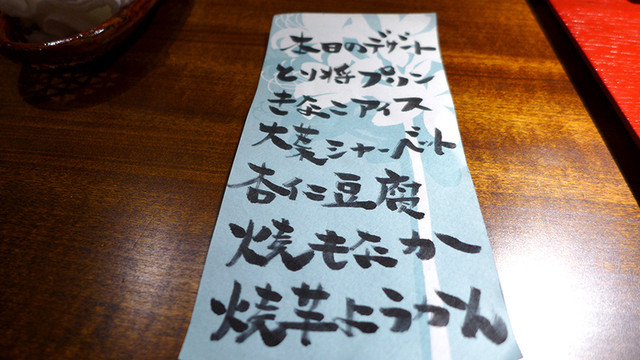 本日のデザート
とり将プリン
きなこアイス
大葉シャーベット
杏仁豆腐
焼もなカー
焼芋ようかん